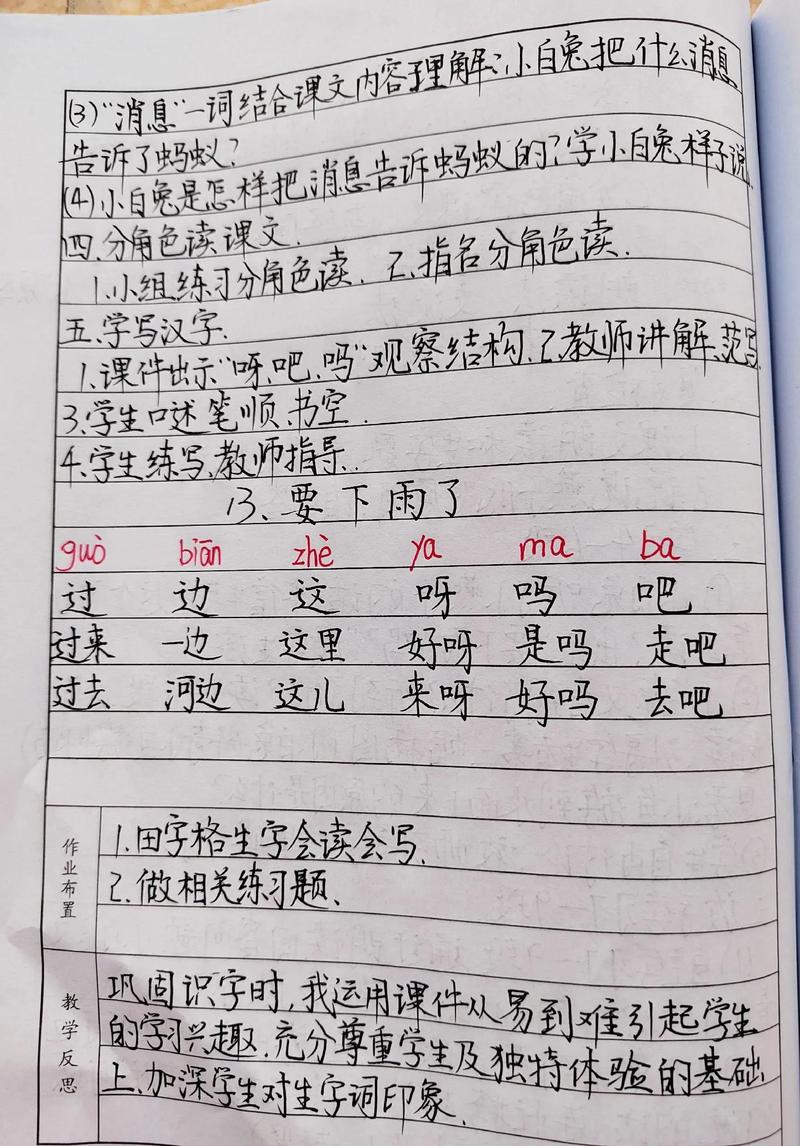 (3)"消息"一词结合课文内容理解:小白兔把什么消息
告诉了蚂蚁?
(4)小白兔是怎样把消息告诉蚂蚁的?学小白兔样子说.
四.分角色读课文.
1.小组练习分角色读. 2.指名分角色读.
五.学写汉字.
1.课件出示"呀.吧.吗"观察结构.2.教师讲解、范写
3.学生口述笔顺.书空.
4.学生练写.教师指导.
13、要下雨了
guò biān zhè ya ma ba
过 边 这 呀 吗 吧
过来 一边 这里 好呀 是吗 走吧
过去 河边 这儿 来呀 好吗 去吧
作业布置
1.田字格生字会读会写.
2.做相关练习题.
教学反思
巩固识字时,我运用课件从易到难引起学生
的学习兴趣.充分尊重学生及独特体验的基础
上.加深学生对生字词印象.